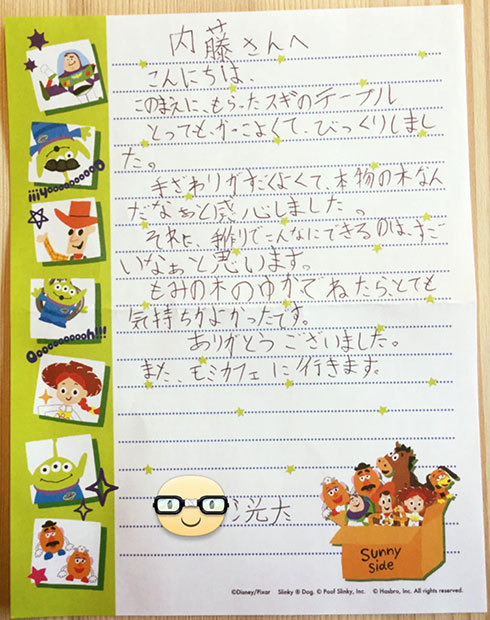 内藤さんへ
こんにちは、
このまえに、もらったスギのテーブル
とっても、かっこよくて、びっくりしまし
た。
手ざわりがすごくよくて、本物の木なん
だなぁと感心しました。
それに、手作りでこんなにできるのは、すご
いなぁと思います。
もみの木のゆかでねたら、とても
気持ちがよかったです。
ありがとうございました。
また、モミカフェに行きます。
洸大
iiiyooooooooo
Oooooooooh!!!
Sunny
Side
©Disney/Pixar Slinky ® Dog. © Poof Slinky, Inc. © Hasbro, Inc. All rights reserved.